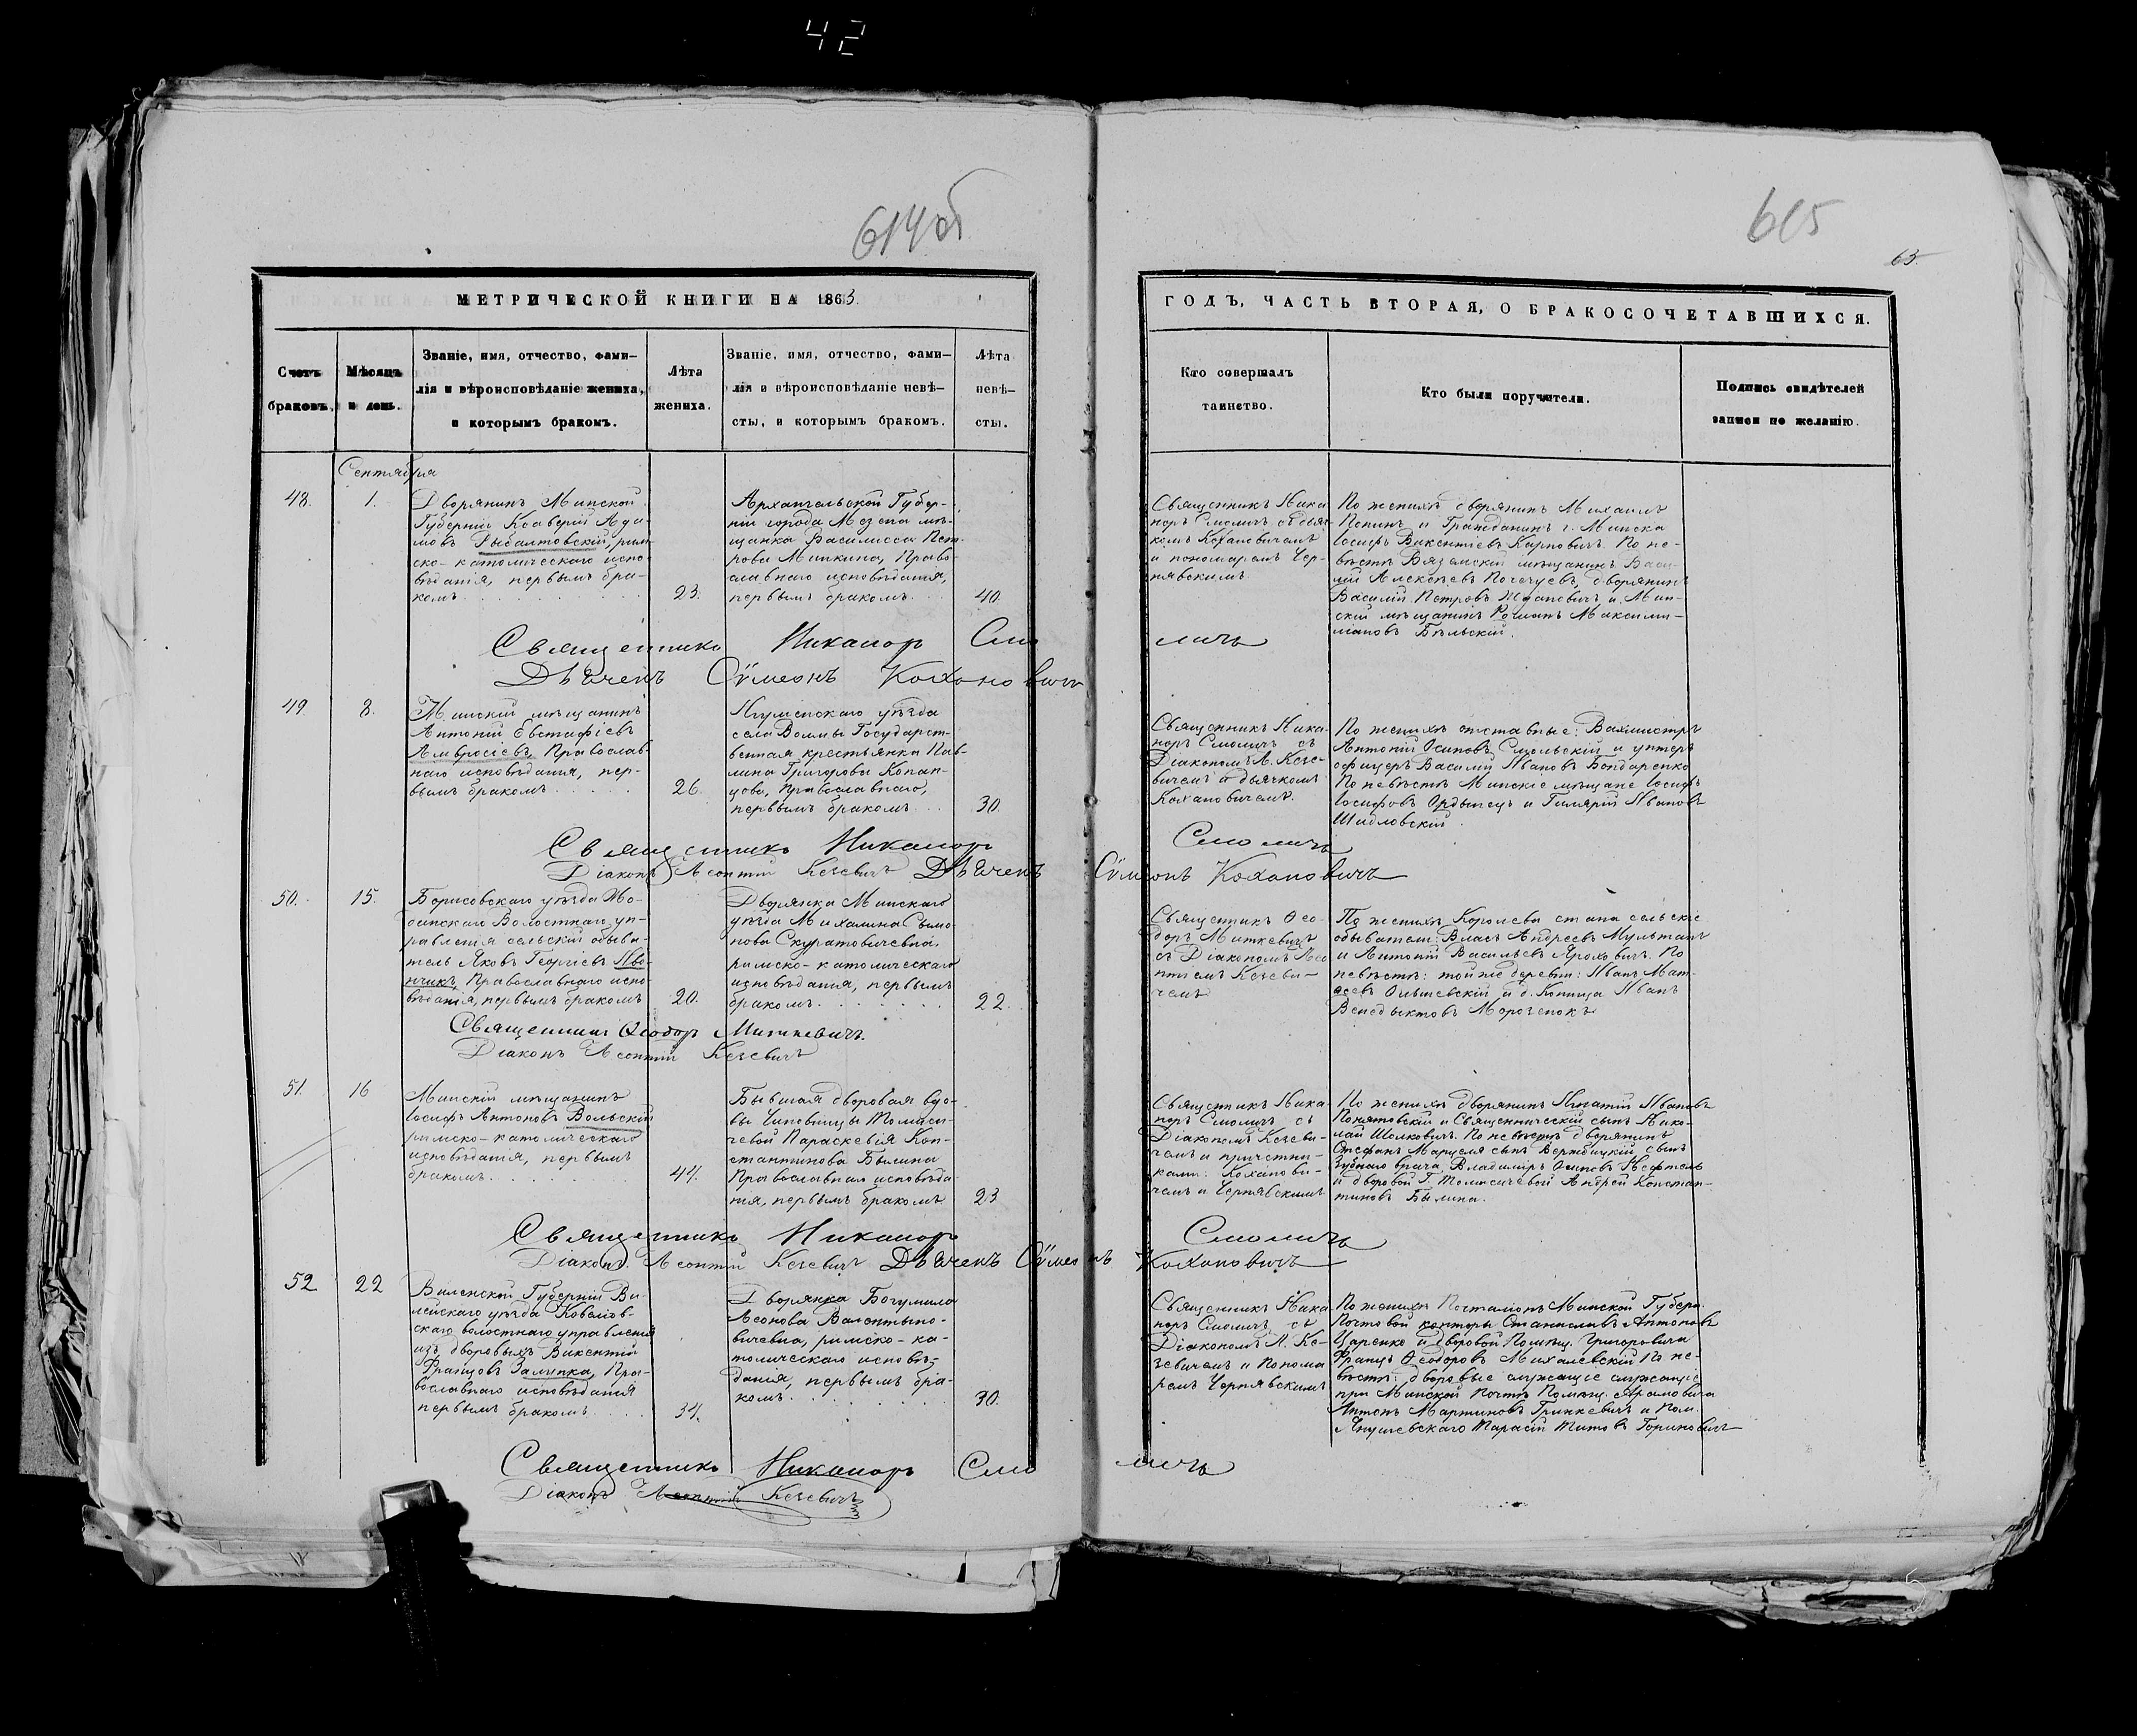 42
614об
615
63.
МЕТРИЧЕСКОЙ КНИГИ НА 1863.
ГОДЪ, ЧАСТЬ ВТОРАЯ, О БРАКОСОЧЕТАВШИХСЯ.
Счетъ
браковъ.
Мѣсяцъ
и день.
Званіе, имя, отчество, фами-
лія и вѣроисповѣданіе жениха,
и которымъ бракомъ.
Лѣта
жениха.
Званіе, имя, отчество, фами-
лія и вѣроисповѣданіе невѣ-
сты, и которымъ бракомъ.
Лѣта
невѣ-
сты.
Кто совершалъ
таинство.
Кто были поручители.
Подпись свидѣтелей
записи по желанію.
Сентября
48.
1.
Дворянинъ Минской
Губерніи Ксаверій Ада-
мовъ Рыбалтовскій, рим-
ско-католическаго испо-
вѣданія, первымъ бра-
комъ
23.
Архангельской Губер-
ніи города Мезена мѣ-
щанка Василисса Пет-
рова Минкина, Право-
славнаго исповѣданія,
первымъ бракомъ
40.
Священникъ Ника-
норъ Смоличъ съ дьяч-
комъ Кохановичемъ
и пономаремъ Чер-
нявскимъ
По женихѣ дворянинъ Михаилъ
и Гражданинъ г. Минска
Іосифъ Викентіевъ Карповичъ. По не-
вѣстѣ Вяземскій мѣщанинъ Васи-
лій Алексѣевъ дворянинъ
Василій Петровъ Ждановичъ и Мин-
скій мѣщанинъ Романъ Максими-
ліановъ Бѣльскій.
Священникъ Никаноръ Смоличъ
Дьячекъ Сѵмеонъ Кохановичъ
49.
8.
Минскій мѣщанинъ
Антоній Евстафіевъ
Амвросіевъ, Православ-
наго исповѣданія, пер-
вымъ бракомъ
26.
Игуменскаго уѣзда
села Волмы Государст-
венная крестьянка Пав-
лина Григорова Копан-
цова, Православнаго,
первымъ бракомъ
30.
Священникъ Ника-
норъ Смоличъ съ
Діакономъ Л. Кезе-
вичемъ и дьячкомъ
Кохановичемъ.
По женихѣ отставные: Вахмистръ
Антоній Осиповъ Смольскій и унтеръ
офицеръ Василій Ивановъ Бондаренко
По невѣстѣ Минскіе мѣщане Іосифъ
Іосифовъ Ордынецъ и Гилярій Ивановъ
Шидловскій.
Священникъ Никаноръ Смоличъ
Діаконъ Леонтій Кезевичъ Дьячекъ Сѵмеонъ Кохановичъ
50.
15.
Борисовскаго уѣзда Жо-
динскаго Волостнаго уп-
равленія сельскій обыва-
тель Яковъ Георгіевъ Иво-
нчикъ, Православнаго испо-
вѣданія, первымъ бракомъ
20.
Дворянка Минскаго
уѣзда Михалина Сымо-
нова Скуратовичевна,
римско-католическаго
исповѣданія, первымъ
бракомъ
22.
Священникъ Ѳео-
доръ Миткевичъ
съ Діакономъ Лео-
нтіемъ Кезеви-
чемъ
По женихѣ Королева стана сельскіе
обыватели: Власъ Андреевъ Мультанъ
и Антоній Васильевъ Ярховичъ. По
невѣстѣ: той же деревни: Иванъ Мат-
ѳеевъ и д. Копища Иванъ
Венедыктовъ Морозенокъ
Священникъ Ѳеодоръ Миткевичъ.
Діаконъ Леонтій Кезевичъ
51.
16
Минскій мѣщанинъ
Іосифъ Антоновъ Вольскій
римско-католическаго
исповѣданія, первымъ
бракомъ.
44.
Бывшая дворовая вдо-
вы Чиновницы Томаси-
чевой Параскевія Кон-
стантинова Былина
Православнаго исповѣда-
нія, первымъ бракомъ
23
Священникъ Ника-
норъ Смоличъ съ
Діакономъ Кезеви-
чемъ и причетни-
ками: Кохонови-
чемъ и Чернявскимъ
По женихѣ дворянинъ Игнатій Ивановъ
Понятовскій и Священническій сынъ Нико-
лай Шолковичъ. По невѣстѣ дворянинъ
Стефанъ Марцеля сынъ Вержбицкій, сынъ
Зубнаго врача Владиміръ Осиповъ Нефтель
и дворовой Г. Томасичевой Андрей Констан-
тиновъ Былина.
Священникъ Никаноръ Смоличъ
Діаконъ Леонтій Кезевичъ Дьячекъ Сѵмеонъ Кохановичъ
52
22
Виленской Губерніи Ви-
лейскаго уѣзда
скаго волостнаго управленія
изъ дворовыхъ Викентій
Францовъ Залипка, Пра-
вославнаго исповѣданія
первымъ бракомъ
34.
Дворянка Богумила
Леонова Валентыно-
вичевна, римско-ка-
толическаго исповѣ-
данія, первымъ бра-
комъ
30.
Священникъ Ника-
норъ Смоличъ съ
Діакономъ Л. Ке-
зевичемъ и Понома-
ремъ Чернявскимъ
По женихѣ Почталіонъ Минской Губерн.
Почтовой конторы Станиславъ Антоновъ
Царенко и дворовой Помѣщ. Григоровича
Францъ Ѳеодоровъ Михалевскій По не-
вѣстѣ: дворовые служащіе служащіе
при Минской Почтѣ Помѣщ.
Антонъ Мартиновъ Гринкевичъ и Пом.
Янушевскаго Тарасій Титовъ Гориновичъ
Священникъ Никаноръ Смоличъ
Діаконъ Леонтій Кезевичъ